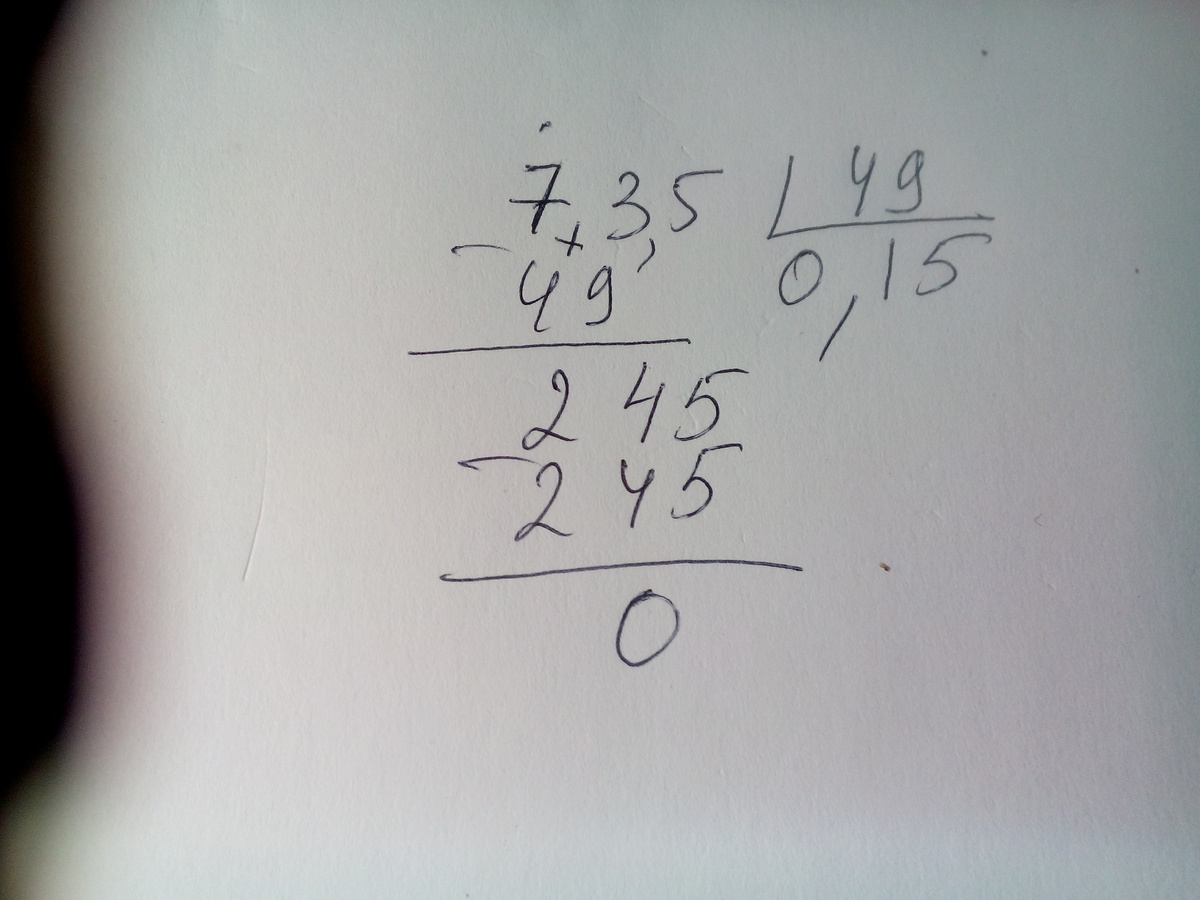 7,3,5 49
- 49 0,15
245
- 245
0